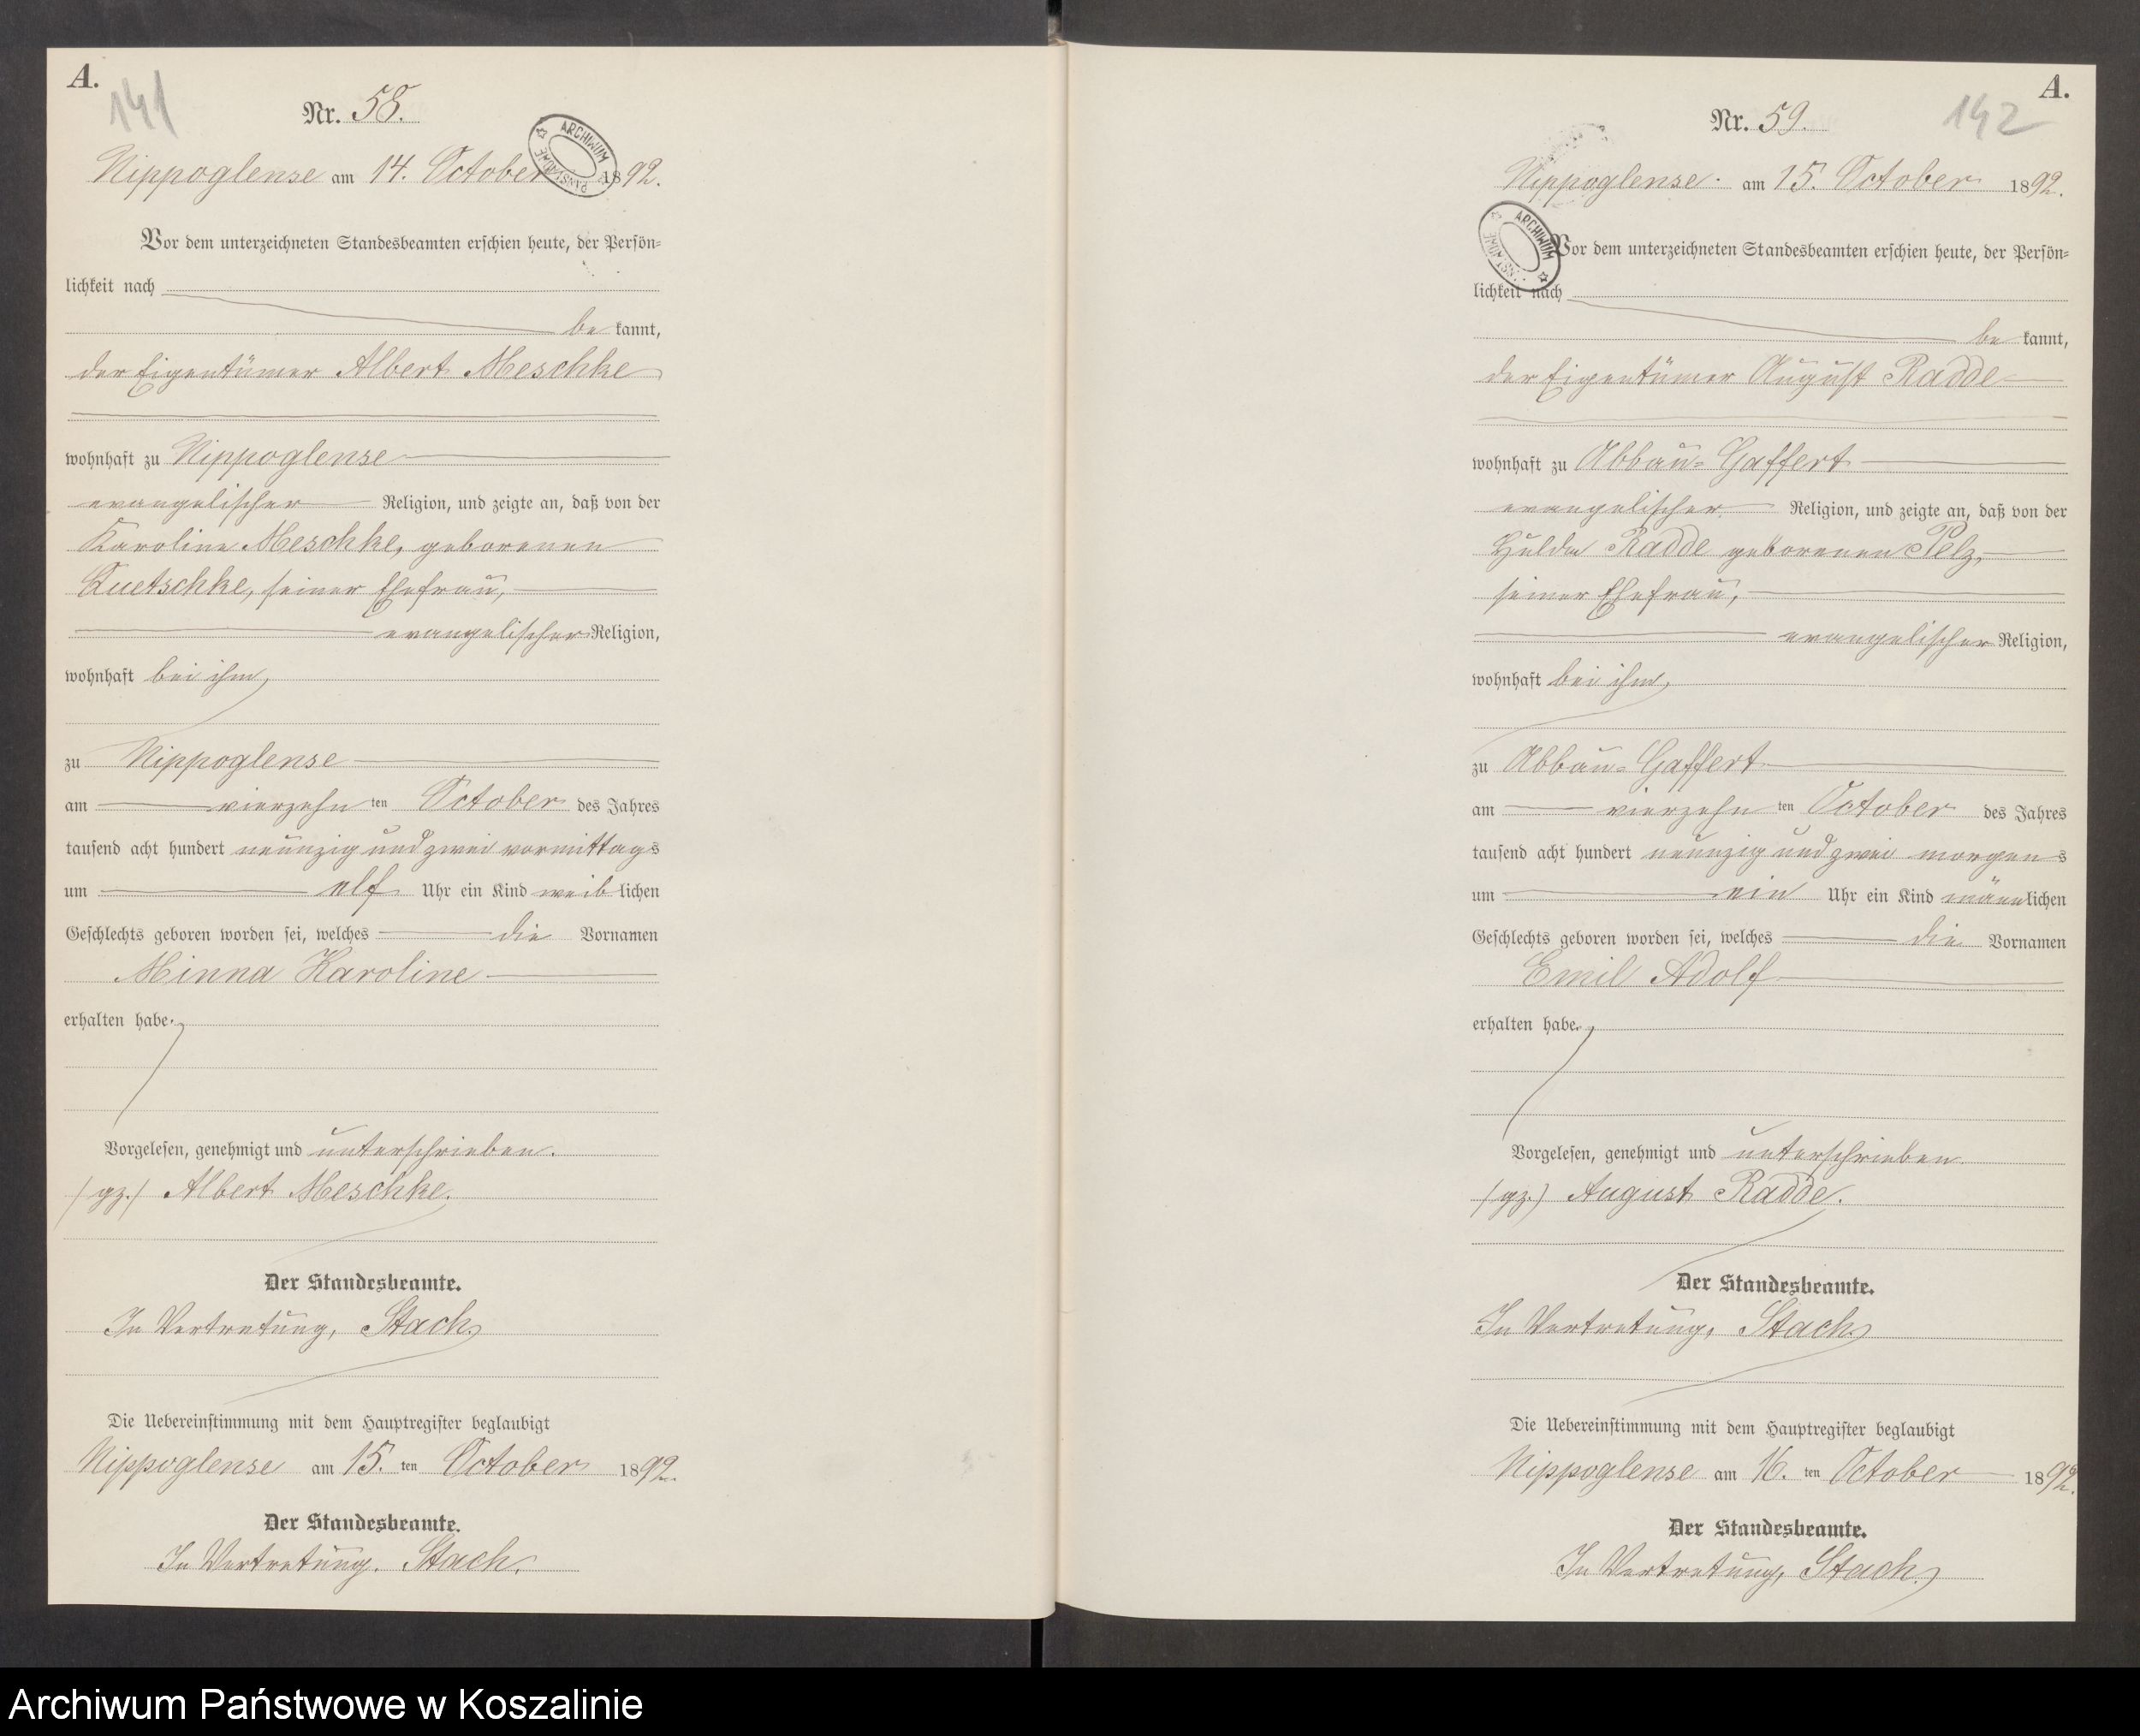 A.
141
Nr. 58.
Nippoglense am 14. October 1892.
ARCHIWUM PAŃSTWOWE
Vor dem unterzeichneten Standesbeamten erschien heute, der Persön-
lichkeit nach
be kannt,
der Eigentümer Albert Meschke
wohnhaft zu Nippoglense
evangelischer Religion, und zeigte an, daß von der
Karoline Meschke, geborenen
Quetschke, seiner Ehefrau,
evangelischer Religion,
wohnhaft bei ihm,
zu Nippoglense
am vierzehn ten October des Jahres
tausend acht hundert neunzig und zwei vormittags
um elf Uhr ein Kind weib lichen
Geschlechts geboren worden sei, welches die Vornamen
Minna Karoline
erhalten habe.
Vorgelesen, genehmigt und unterschrieben.
(gz.) Albert Meschke.
Der Standesbeamte.
In Vertretung, Stach
Die Uebereinstimmung mit dem Hauptregister beglaubigt
Nippoglense am 15. ten October 1892.
Der Standesbeamte.
In Vertretung. Stach.
A.
142
Nr. 59.
Nippoglense. am 15. October 1892.
ARCHIWUM PAŃSTWOWE
Vor dem unterzeichneten Standesbeamten erschien heute, der Persön-
lichkeit nach
be kannt,
der Eigentümer August Radde
wohnhaft zu Abbau-Gaffert
evangelischer Religion, und zeigte an, daß von der
Hulda Radde geborenen Pelz,
seiner Ehefrau,
evangelischer Religion,
wohnhaft bei ihm,
zu Abbau-Gaffert
am vierzehn ten October des Jahres
tausend acht hundert neunzig und zwei morgens
um ein Uhr ein Kind männlichen
Geschlechts geboren worden sei, welches die Vornamen
Emil Adolf
erhalten habe.
Vorgelesen, genehmigt und unterschrieben.
(gz.) August Radde.
Der Standesbeamte.
In Vertretung, Stach
Die Uebereinstimmung mit dem Hauptregister beglaubigt
Nippoglense am 16. ten October 1892.
Der Standesbeamte.
In Vertretung, Stach.
Archiwum Państwowe w Koszalinie